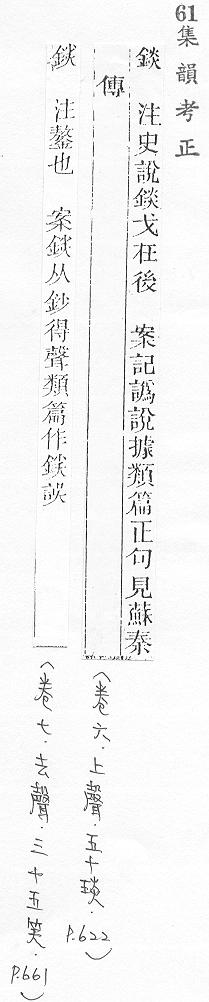 61集韻考正
錟　注史說錟戈在後　案記譌說據類篇正句見蘇秦
傳
（卷六．上聲．五十琰．P.622）
錟　注鏊也　案錟从鈔得聲類篇作錟誤
（卷七．去聲．三十五笑．P.661）